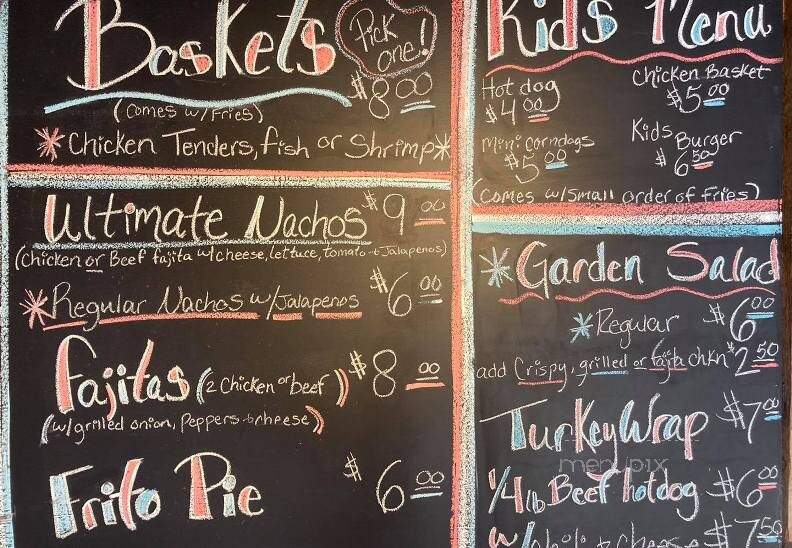 Baskets
Pick
one!
$8.00
(Comes w/Fries)
*Chicken Tenders, fish or Shrimp*
Ultimate Nachos $9.00
(Chicken or Beef fajita w/cheese, lettuce, tomato + Jalapenos)
*Regular Nachos w/Jalapenos $6.00
Fajitas (2 chicken or beef) $8.00
(w/grilled onion, Peppers + cheese)
Frito Pie $6.00
Kids Menu
Hot dog
$4.00
Chicken Basket
$5.00
Mini corndogs
$5.00
Kids Burger
$6.50
(Comes w/small order of fries)
*Garden Salad
*Regular $6.00
add Crispy, grilled or fajita chkn* 2.50
Turkey Wrap $7.00
menupix
1/4 lb Beef hotdog $6.00
cheese $7.50